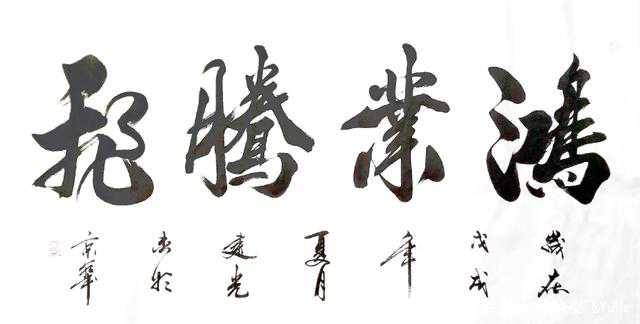 鴻業騰飛
歲在戊戌年夏月建光書於京華